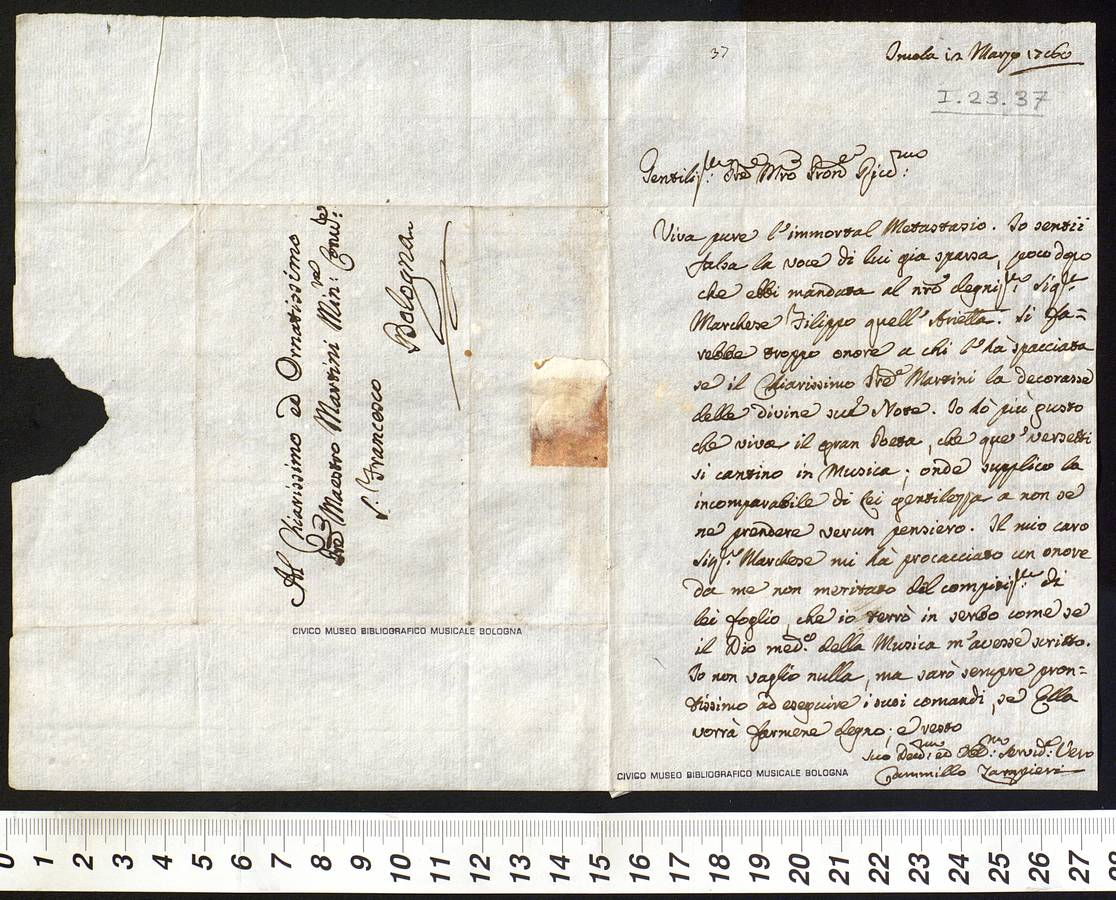 Al Chiarissimo ed Ornatissimo
Pre Maestro Martini Min: Conv:
S. Francesco
Bologna
CIVICO MUSEO BIBLIOGRAFICO MUSICALE BOLOGNA
37
Imola 12 Marzo 1760
I.23.37
Gentiliss: Pre Mro Pron
Viva pure l'immortal Metastasio. Io sentii
falsa la voce di lui gia sparsa, poco dopo
che ebbi mandata al nro degniss: Sigr
Marchese Filippo quell'Arietta. Si fa=
rebbe troppo onore a chi l'hà spacciata
se il Chiarissimo Pre Martini la decorasse
delle divine sue Note. Io hò più gusto
che viva il gran Poeta, che que' versetti
si cantino in Musica; onde supplico la
incomparabile di Lei gentilezza a non se
ne prendere verun pensiero. Il mio caro
Sigr Marchese mi hà procacciato un onore
da me non meritato del compitiss: di
lei foglio, che io terrò in serbo come se
il Dio medo della Musica m'avesse scritto.
Io non vaglio nulla, ma sarò sempre pron=
tissimo ad eseguire i suoi comandi, se Ella
vorrà farmene degno; e resto
suo ed Servid: Vero
Cammillo Zampieri
CIVICO MUSEO BIBLIOGRAFICO MUSICALE BOLOGNA
0 1 2 3 4 5 6 7 8 9 10 11 12 13 14 15 16 17 18 19 20 21 22 23 24 25 26 27 28